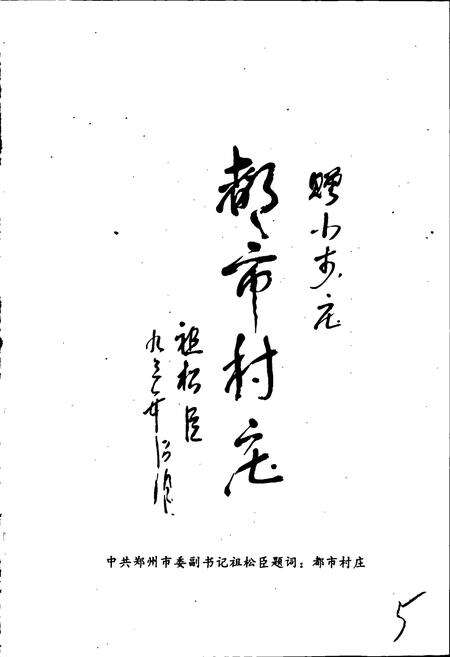 赠小李庄
都市村庄
祖松臣
九三年
中共郑州市委副书记祖松臣题词：都市村庄
5